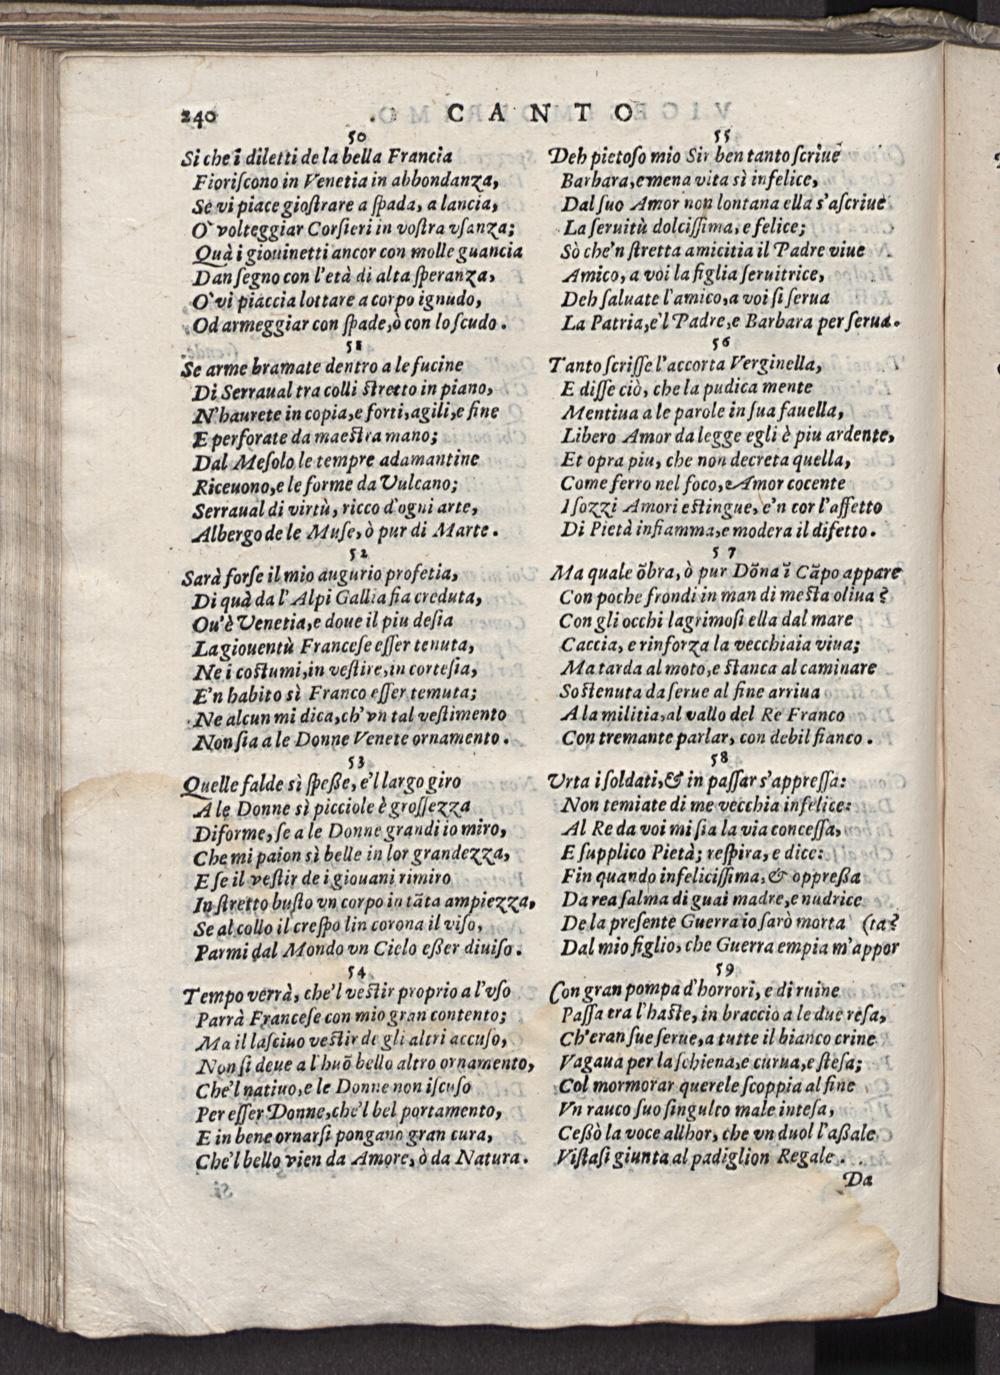 240
CANTO
50
Si che i diletti de la bella Francia
Fioriſcono in Venetia in abbondanza,
Se vi piace gioſtrare a ſpada, a lancia,
O' volteggiar Corſieri in voſtra vſanza;
Quà i giouinetti ancor con molle guancia
Dan ſegno con l'età di alta ſperanza,
O' vi piaccia lottare a corpo ignudo,
Od armeggiar con ſpade, ò con lo ſcudo.
51
Se arme bramate dentro a le fucine
Di Serraual tra colli ſtretto in piano,
N'haurete in copia, e forti, agili, e fine
E perforate da maeſtra mano;
Dal Meſolo le tempre adamantine
Riceuono, e le forme da Vulcano;
Serraual di virtù, ricco d'ogni arte,
Albergo de le Muſe, ò pur di Marte.
52
Sarà forſe il mio augurio profetia,
Di quà da l'Alpi Gallia fia creduta,
Ou'è Venetia, e doue il piu deſia
La giouentù Franceſe eſſer tenuta,
Ne i coſtumi, in veſtire, in corteſia,
E'n habito sì Franco eſſer temuta;
Ne alcun mi dica, ch'vn tal veſtimento
Non ſia a le Donne Venete ornamento.
53
Quelle falde sì ſpeße, e'l largo giro
A le Donne sì picciole è groſſezza
Diforme, ſe a le Donne grandi io miro,
Che mi paion sì belle in lor grandezza,
E ſe il veſtir de i giouani rimiro
In ſtretto buſto vn corpo in tãta ampiezza,
Se al collo il creſpo lin corona il viſo,
Parmi dal Mondo vn Cielo eßer diuiſo.
54
Tempo verrà, che'l veſtir proprio a l'vſo
Parrà Franceſe con mio gran contento;
Ma il laſciuo veſtir de gli altri accuſo,
Non ſi deue a l'huõ bello altro ornamento,
Che'l natiuo, e le Donne non iſcuſo
Per eſſer Donne, che'l bel portamento,
E in bene ornarſi pongano gran cura,
Che'l bello vien da Amore, ò da Natura.
55
Deh pietoſo mio Sir ben tanto ſcriue
Barbara, e mena vita sì infelice,
Dal ſuo Amor non lontana ella s'aſcriue
La ſeruitù dolciſſima, e felice;
Sò che'n ſtretta amicitia il Padre viue
Amico, a voi la figlia ſeruitrice,
Deh ſaluate l'amico, a voi ſi ſerua
La Patria, e'l Padre, e Barbara per ſerua.
56
Tanto ſcriſſe l'accorta Verginella,
E diſſe ciò, che la pudica mente
Mentiua a le parole in ſua fauella,
Libero Amor da legge egli è piu ardente,
Et opra piu, che non decreta quella,
Come ferro nel foco, e Amor cocente
I ſozzi Amori eſtingue, e'n cor l'affetto
Di Pietà infiamma, e modera il difetto.
57
Ma quale õbra, ò pur Dõna ĩ Cãpo appare
Con poche frondi in man di meſta oliua?
Con gli occhi lagrimoſi ella dal mare
Caccia, e rinforza la vecchiaia viua;
Ma tarda al moto, e ſtanca al caminare
Soſtenuta da ſerue al fine arriua
A la militia, al vallo del Re Franco
Con tremante parlar, con debil fianco.
58
Vrta i ſoldati, & in paſſar s'appreſſa:
Non temiate di me vecchia infelice:
Al Re da voi mi ſia la via conceſſa,
E ſupplico Pietà; reſpira, e dice:
Fin quando infeliciſſima, & oppreßa
Da rea ſalma di guai madre, e nudrice
De la preſente Guerra io ſarò morta
(ta?
Dal mio figlio, che Guerra empia m'appor
59
Con gran pompa d'horrori, e di ruine
Paſſa tra l'haſte, in braccio a le due reſa,
Ch'eran ſue ſerue, a tutte il bianco crine
Vagaua per la ſchiena, e curua, e ſteſa;
Col mormorar querele ſcoppia al fine
Vn rauco ſuo ſingulto male inteſa,
Ceßò la voce allhor, che vn duol l'aßale
Viſtaſi giunta al padiglion Regale.
Da